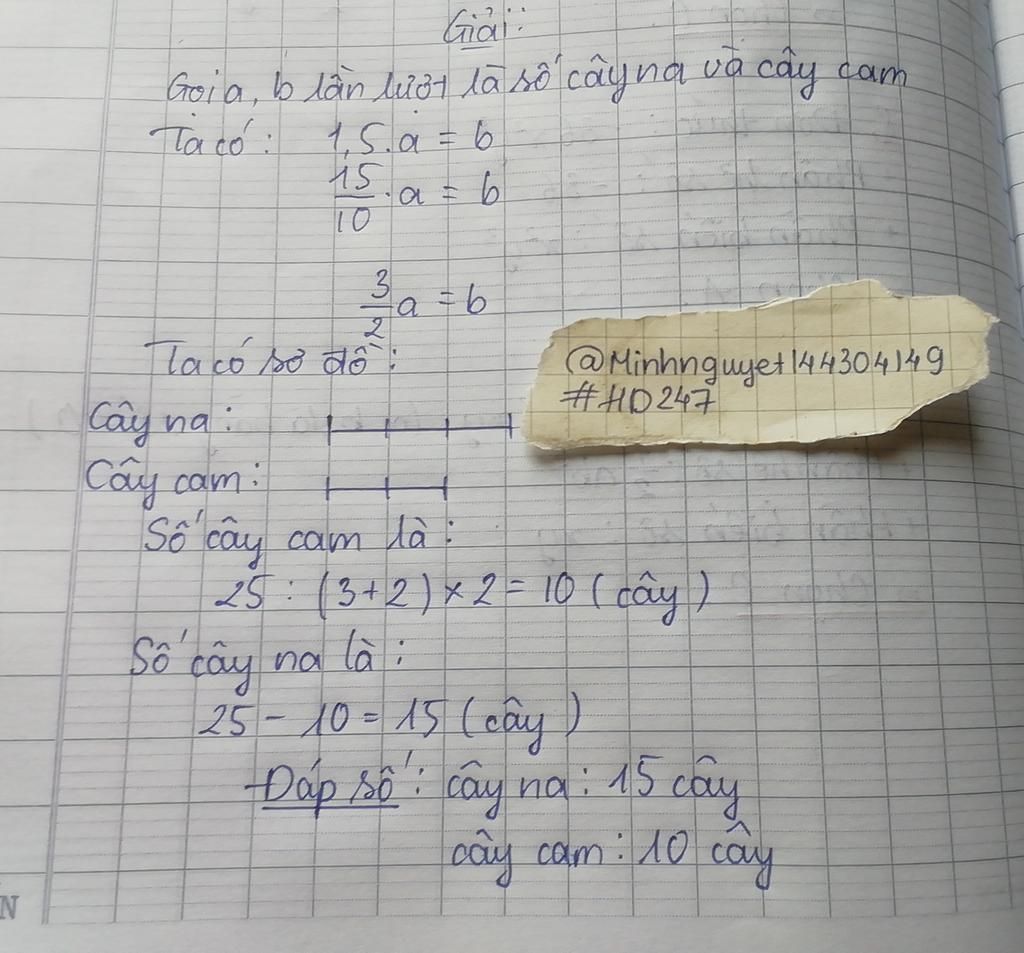 Giải:
Gọi a, b lần lượt là số cây na và cây cam
Ta có: 1,5.a = b
15/10 . a = b
3/2 a = b
Ta có sơ đồ:
@Minhnguyet144304149
#HD247
Cây na:
Cây cam:
Số cây cam là:
25 : (3+2) × 2 = 10 (cây)
Số cây na là:
25 - 10 = 15 (cây)
Đáp số: cây na: 15 cây
cây cam: 10 cây
N